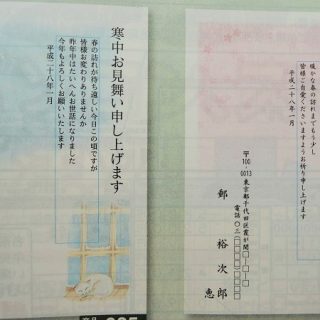 寒中お見舞い申し上げます
春の訪れが待ち遠しい今日この頃ですが
皆様お変わりありませんか
昨年中はたいへんお世話になりました
今年もよろしくお願いいたします
平成二十八年一月
暖かな春の訪れまでもう少し
皆様ご自愛くださいますようお祈り申し上げます
平成二十八年一月
〒100-0013
東京都千代田区霞が関□-□-□
電話〇三(□□□□)□□□□
郵 裕次郎
恵